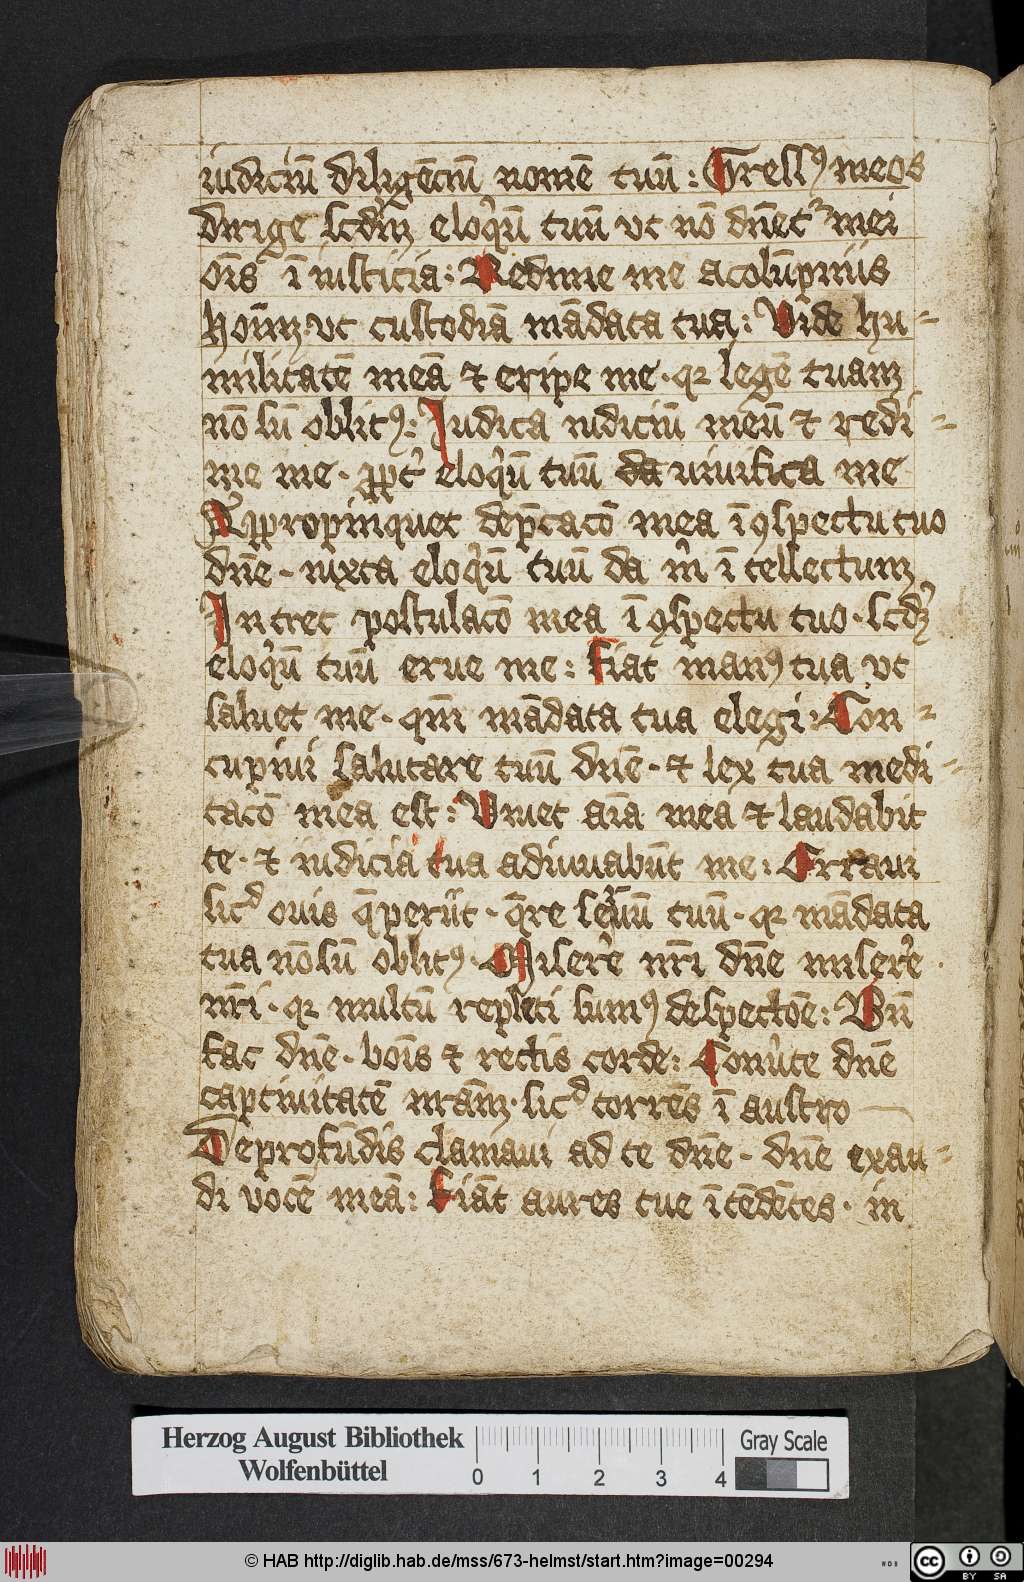 iudiciū diligēciū nomē tuū : Gressꝰ meos
dirige scd̄m eloq̄ū tuū vt nō dn̄et᷑ mei
om̄s ī iusticia : Redime me a calūpniis
hoīm · vt custodiā mādata tua : Vide hu-
militatē meā ⁊ eripe me · qꝛ legē tuam
nō sū oblitꝰ : Iudica iudiciū meū ⁊ redi-
me me · ꝓpt̄ eloq̄ū tuū da uiuifica me
Appropinquet dep̄cacō mea ī ꝯspectu tuo
dn̄e · iuxta eloq̄ū tuū da m̄ ītellectum
Intret postulacō mea ī ꝯspectu tuo · scdꝫ
eloq̄ū tuū erue me : Fiat manꝰ tua vt
saluet me · qm̄ mādata tua elegi : Con-
cupiui salutare tuū dn̄e · ⁊ lex tua medi-
tacō mea est : Viuet aīa mea ⁊ laudabit
te · ⁊ iudicia tua adiuuabūt me : Erraui
sicᵈ ouis q̄ periit · q̄re seruū tuū · qꝛ mādata
tua nō sū oblitꝰ · Miserē nr̄i dn̄e miserē
nr̄i · qꝛ multū repleti sumꝰ despectōe : Bn̄
fac dn̄e · boīs ⁊ rectis corde : Conūte dn̄e
captiuitatē nrām · sicᵈ torrēs ī austro
De profūdis clamaui ad te dn̄e · dn̄e exau-
di vocē meā : Fiāt aures tue ītēdētes · in
Herzog August Bibliothek
Wolfenbüttel
0 1 2 3 4
Gray Scale
© HAB http://diglib.hab.de/mss/673-helmst/start.htm?image=00294
cc BY SA